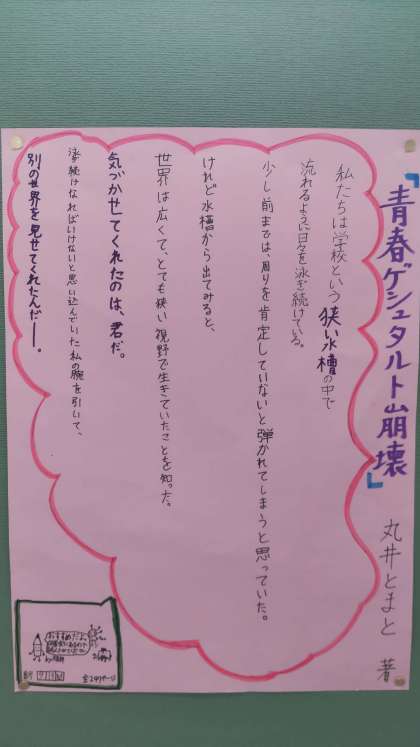 『青春ゲシュタルト崩壊』
丸井とまと 著
私たちは学校という狭い水槽の中で
流れるように日々を泳ぎ続けている。
少し前までは、周りを肯定していないと弾かれてしまうと思っていた。
けれど水槽から出てみると、
世界は広くて、とても狭い視野で生きていたことを知った。
気づかせてくれたのは、君だ。
泳ぎ続けなければいけないと思い込んでいた私の腕を引いて、
別の世界を見せてくれたんだ―。
おすすめだよ。
全249ページ